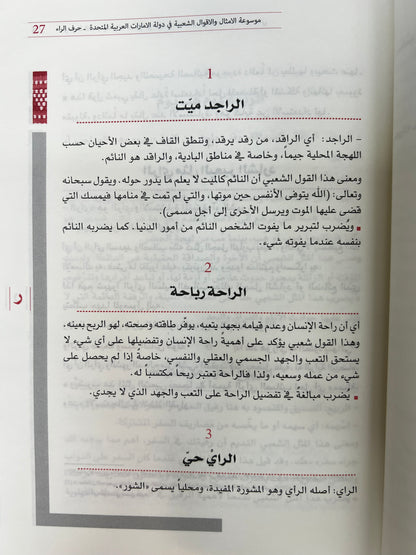 موسوعة الامثال والاقوال الشعبية في دولة الامارات العربية المتحدة . ـ حرف الراء 27
1
الراجد ميّت
- الراجد: أي الراقد، من رقد يرقد، وتنطق القاف في بعض الأحيان حسب
اللهجة المحلية جيماً، وخاصة في مناطق البادية، والراقد هو النائم.
ومعنى هذا القول الشعبي أن النائم كالميت لا يعلم ما يدور حوله. ويقول سبحانه
وتعالى: (اللّه يتوفى الأنفس حين موتها، والتي لم تمت في منامها فيمسك التي
قضى عليها الموت ويرسل الأخرى إلى أجل مسمى).
■ ويُضرب لتبرير ما يفوت الشخص النائم من أمور الدنيا. كما يضربه النائم
بنفسه عندما يفوته شيء.
2
الراحة رباحة
أي أن راحة الإنسان وعدم قيامه بجهد يتعبه، يوفّر طاقته وصحته، لهو الربح بعينه.
وهذا القول الشعبي يؤكد على أهمية راحة الإنسان وتفضيلها على أي شيء لا
يستحق التعب والجهد الجسمي والعقلي والنفسي، خاصة إذا لم يحصل على
شيء من عمله وسعيه، ولذا فالراحة تعتبر ربحاً مكتسباً له.
■ يُضرب مبالغةً في تفضيل الراحة على التعب والجهد الذي لا يجدي.
3
الرايْ حيّ
الراي: أصله الرأي وهو المشورة المفيدة، ومحلياً يسمى «الشور».